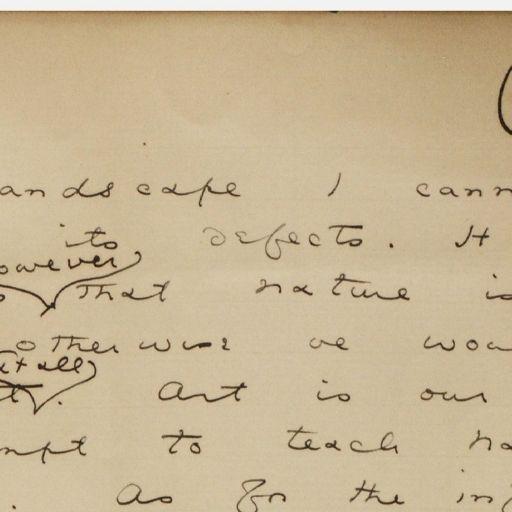 andscape I cann
its defects. It
owever
that nature is
otherwise we wou
at all
t. Art is our
mpt to teach na
. As for the inf